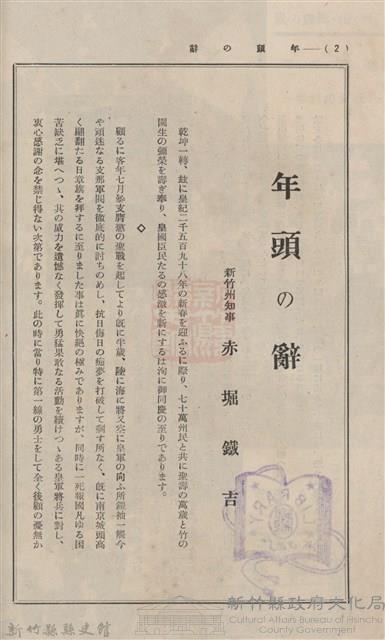 (2)——年頭の辭
年頭の辭
新竹州知事 赤堀鐵吉
乾坤一轉、玆に皇紀二千五百九十八年の新春を迎ふるに際り、七十萬州民と共に聖壽の萬歲と竹の
園生の彌榮を壽ぎ奉り、皇國臣民たるの感激を新にするは洵に御同慶の至りであります。
◇
顧るに客年七月暴支膺懲の聖戰を起してより旣に半歲、陸に海に將又空に皇軍の向ふ所鎧袖一觸今
や頑迷なる支那軍閥を徹底的に討ちのめし、抗日侮日の痴夢を打破して剩す所なく、旣に南京城頭高
く飜翻たる日章旗を拜するに至りました事は眞に快絕の極みでありますが、同時に一死報國凡ゆる困
苦缺乏に堪へつゝ、其の威力を遺憾なく發揮して勇猛果敢なる活動を續けつゝある皇軍將兵に對し、
衷心感謝の念を禁じ得ない次第であります。此の時に當り特に第一線の勇士をして全く後顧の憂無か
LIBRARY
新竹縣縣史館
新竹縣政府文化局
Cultural Affairs Bureau of Hsinchu
County Government